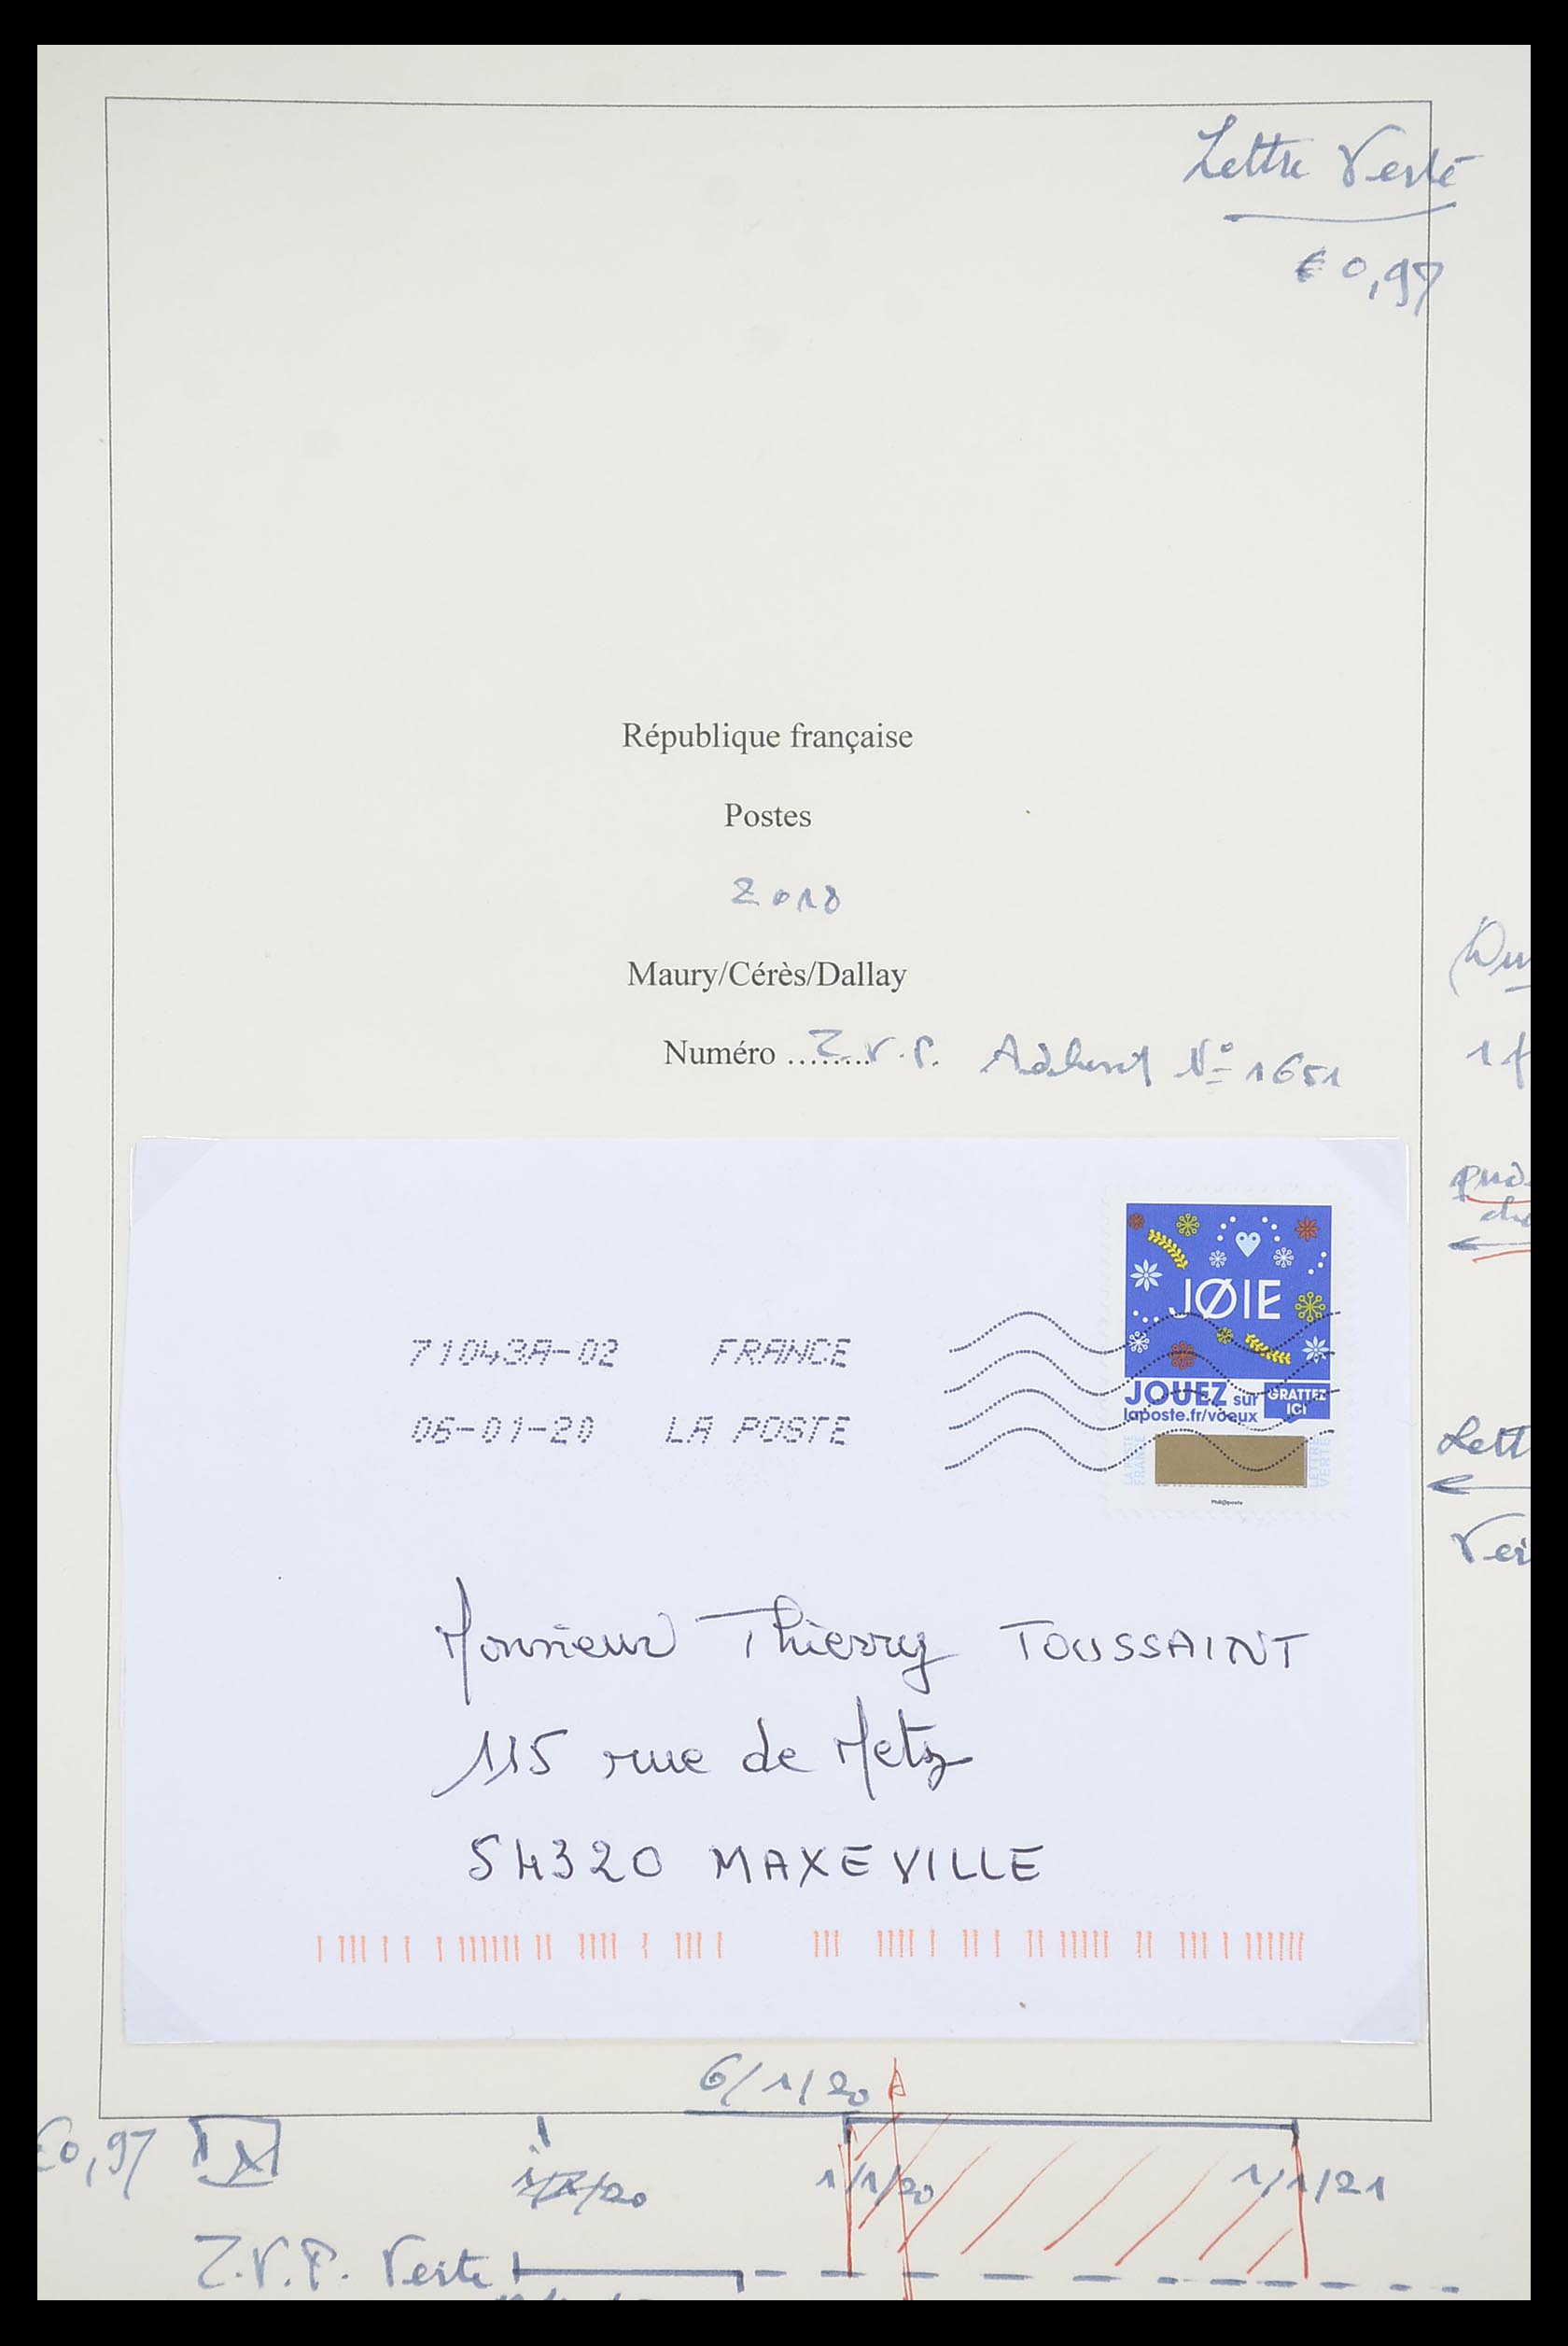 Lettre Verte
€ 0,97
République française
Postes
2018
Maury/Cérès/Dallay
Numéro ........ T.V.P. Adhésif N° 1651
JØIE
71043A-02 FRANCE
JOUEZ sur
laposte.fr/vœux
GRATTEZ
ICI
06-01-20 LA POSTE
LA POSTE
FRANCE
LETTRE
VERTE
Phil@poste
Lett
Ver
Monsieur Thierry TOUSSAINT
115 rue de Metz
54320 MAXEVILLE
6/1/20
€0,97
1/1/20
1/1/21
T.V.P. Verte